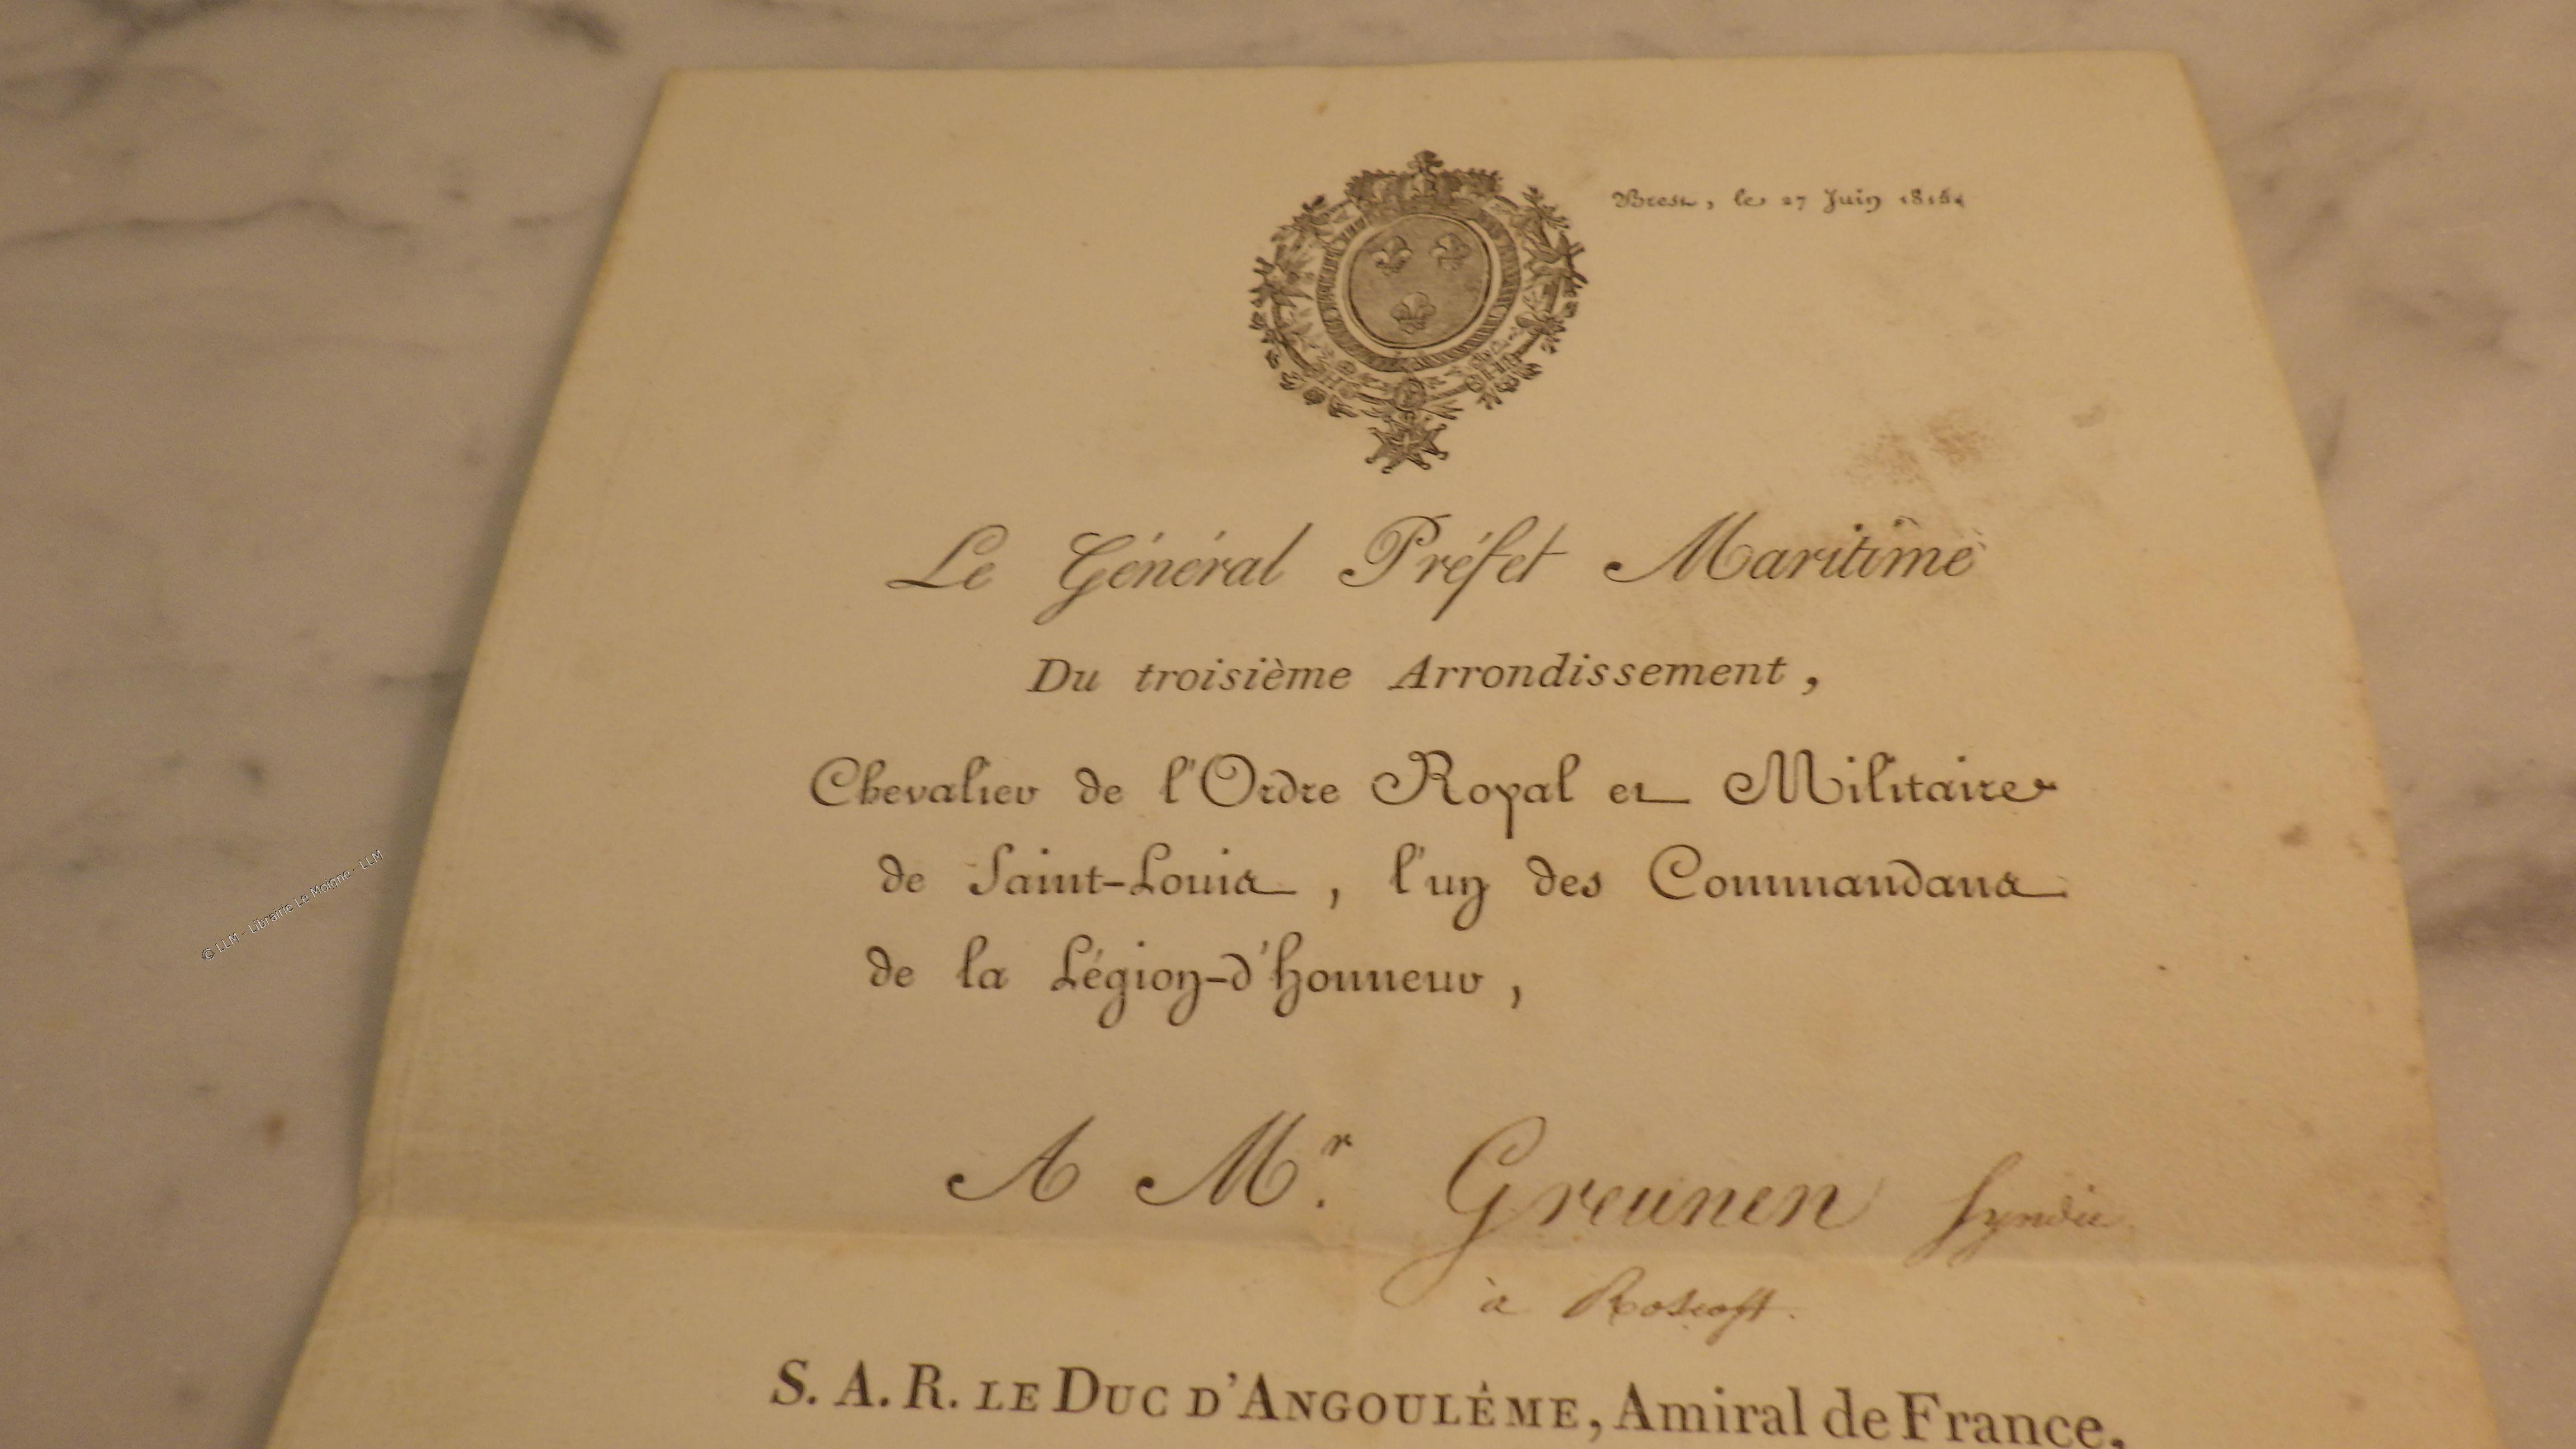 Brest, le 27 Juin 1814
Le Général Préfet Maritime
Du troisième Arrondissement,
Chevalier de l'Ordre Royal et Militaire
de Saint-Louis, l'un des Commandans
de la Légion-d'honneur,
A Mr. Greunen Syndic
à Roscoff.
S. A. R. LE DUC D'ANGOULÊME, Amiral de France,
© LLM - Librairie Le Moigne - LLM